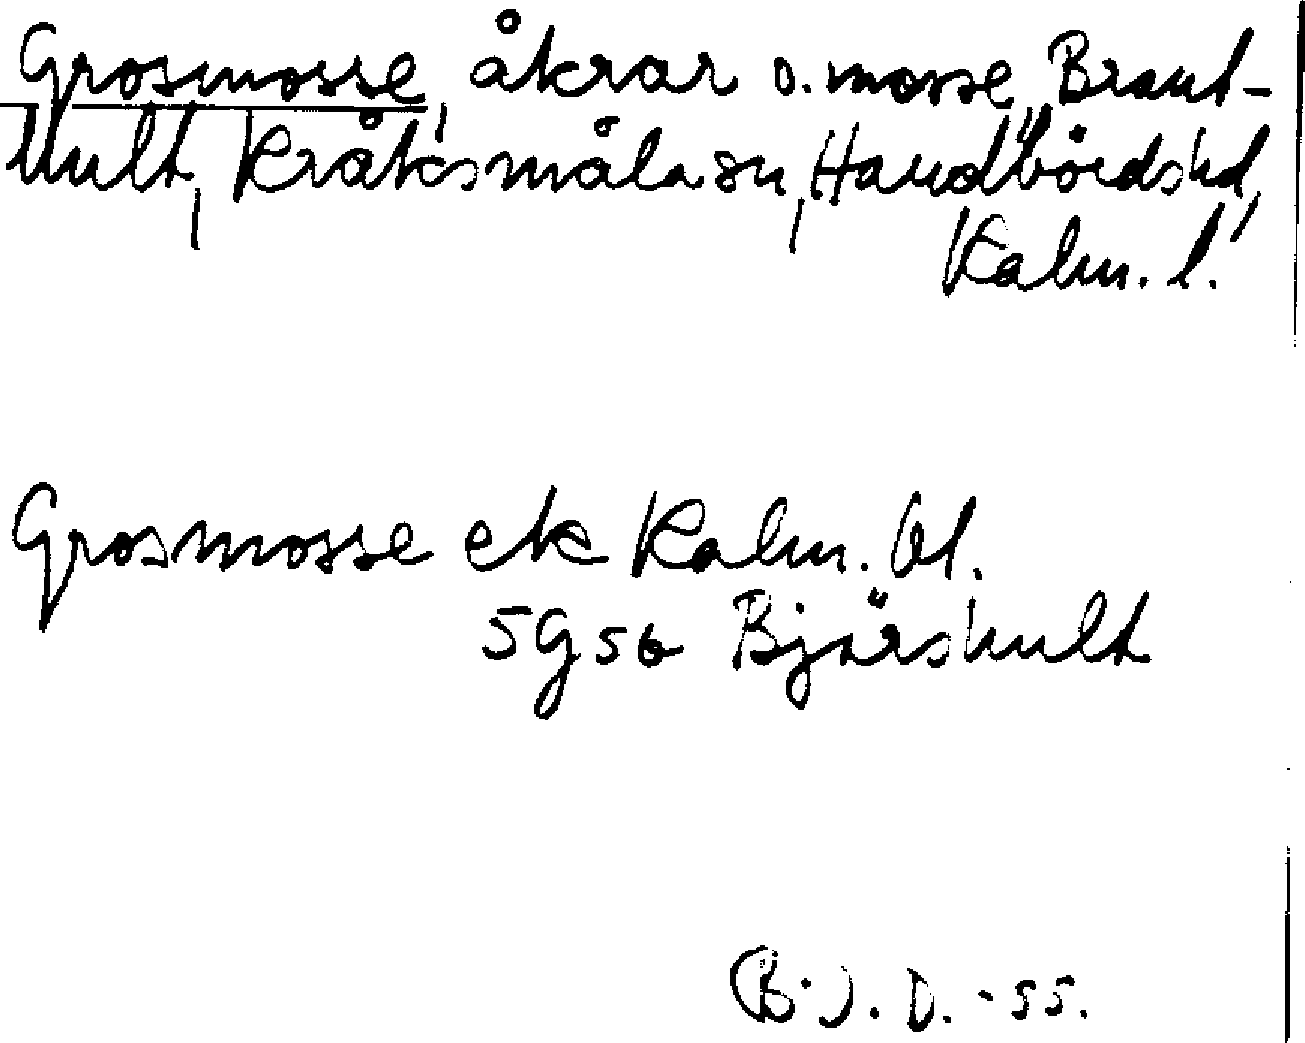 Grosmosse, åkrar o. mosse, Brant-
hult, Kråksmåla sn, Handbörds hd,
Kalm. l.
Grosmosse ek Kalm. bl.
5G5b Bjärshult
B.J.D. -55.